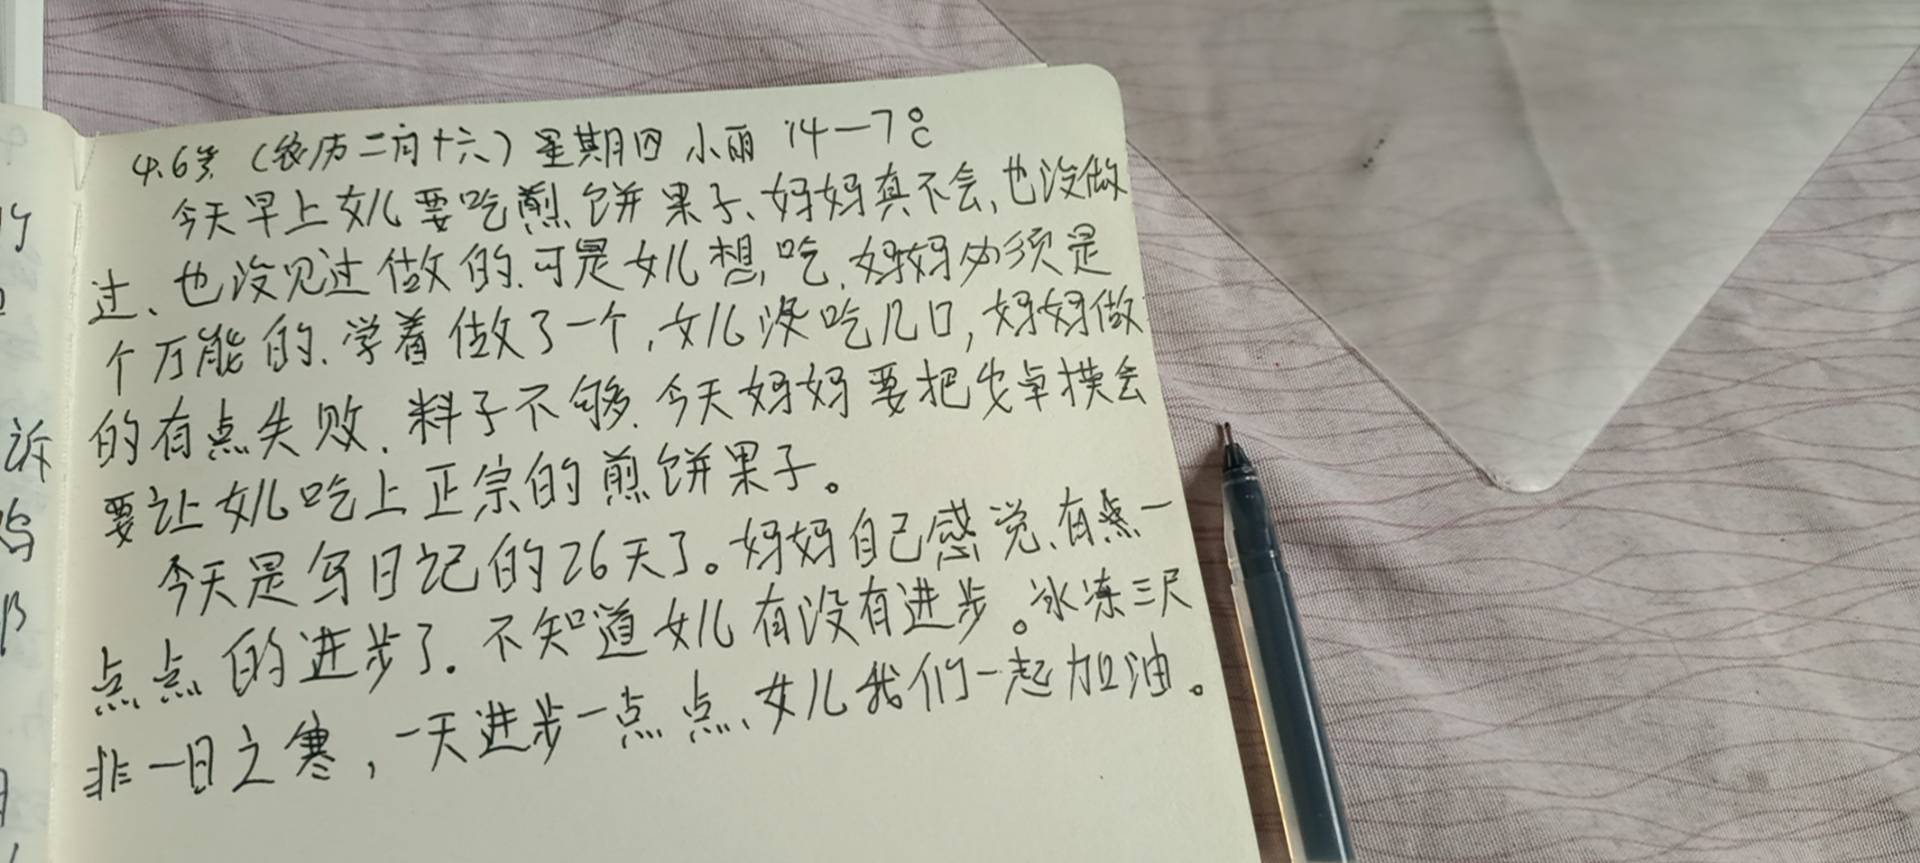 4.6号（农历二月十六）星期四 小丽 14—7℃
今天早上女儿要吃煎饼果子、妈妈真不会,也没做
过、也没见过做的.可是女儿想吃.妈妈必须是
个万能的.学着做了一个,女儿没吃几口,妈妈做
的有点失败.料子不够.今天妈妈要把 模会
要让女儿吃上正宗的煎饼果子。
今天是写日记的26天了。妈妈自己感觉、有点一
点点的进步了.不知道女儿有没有进步。冰冻三尺
非一日之寒,一天进步一点点、女儿我们一起加油。
诉